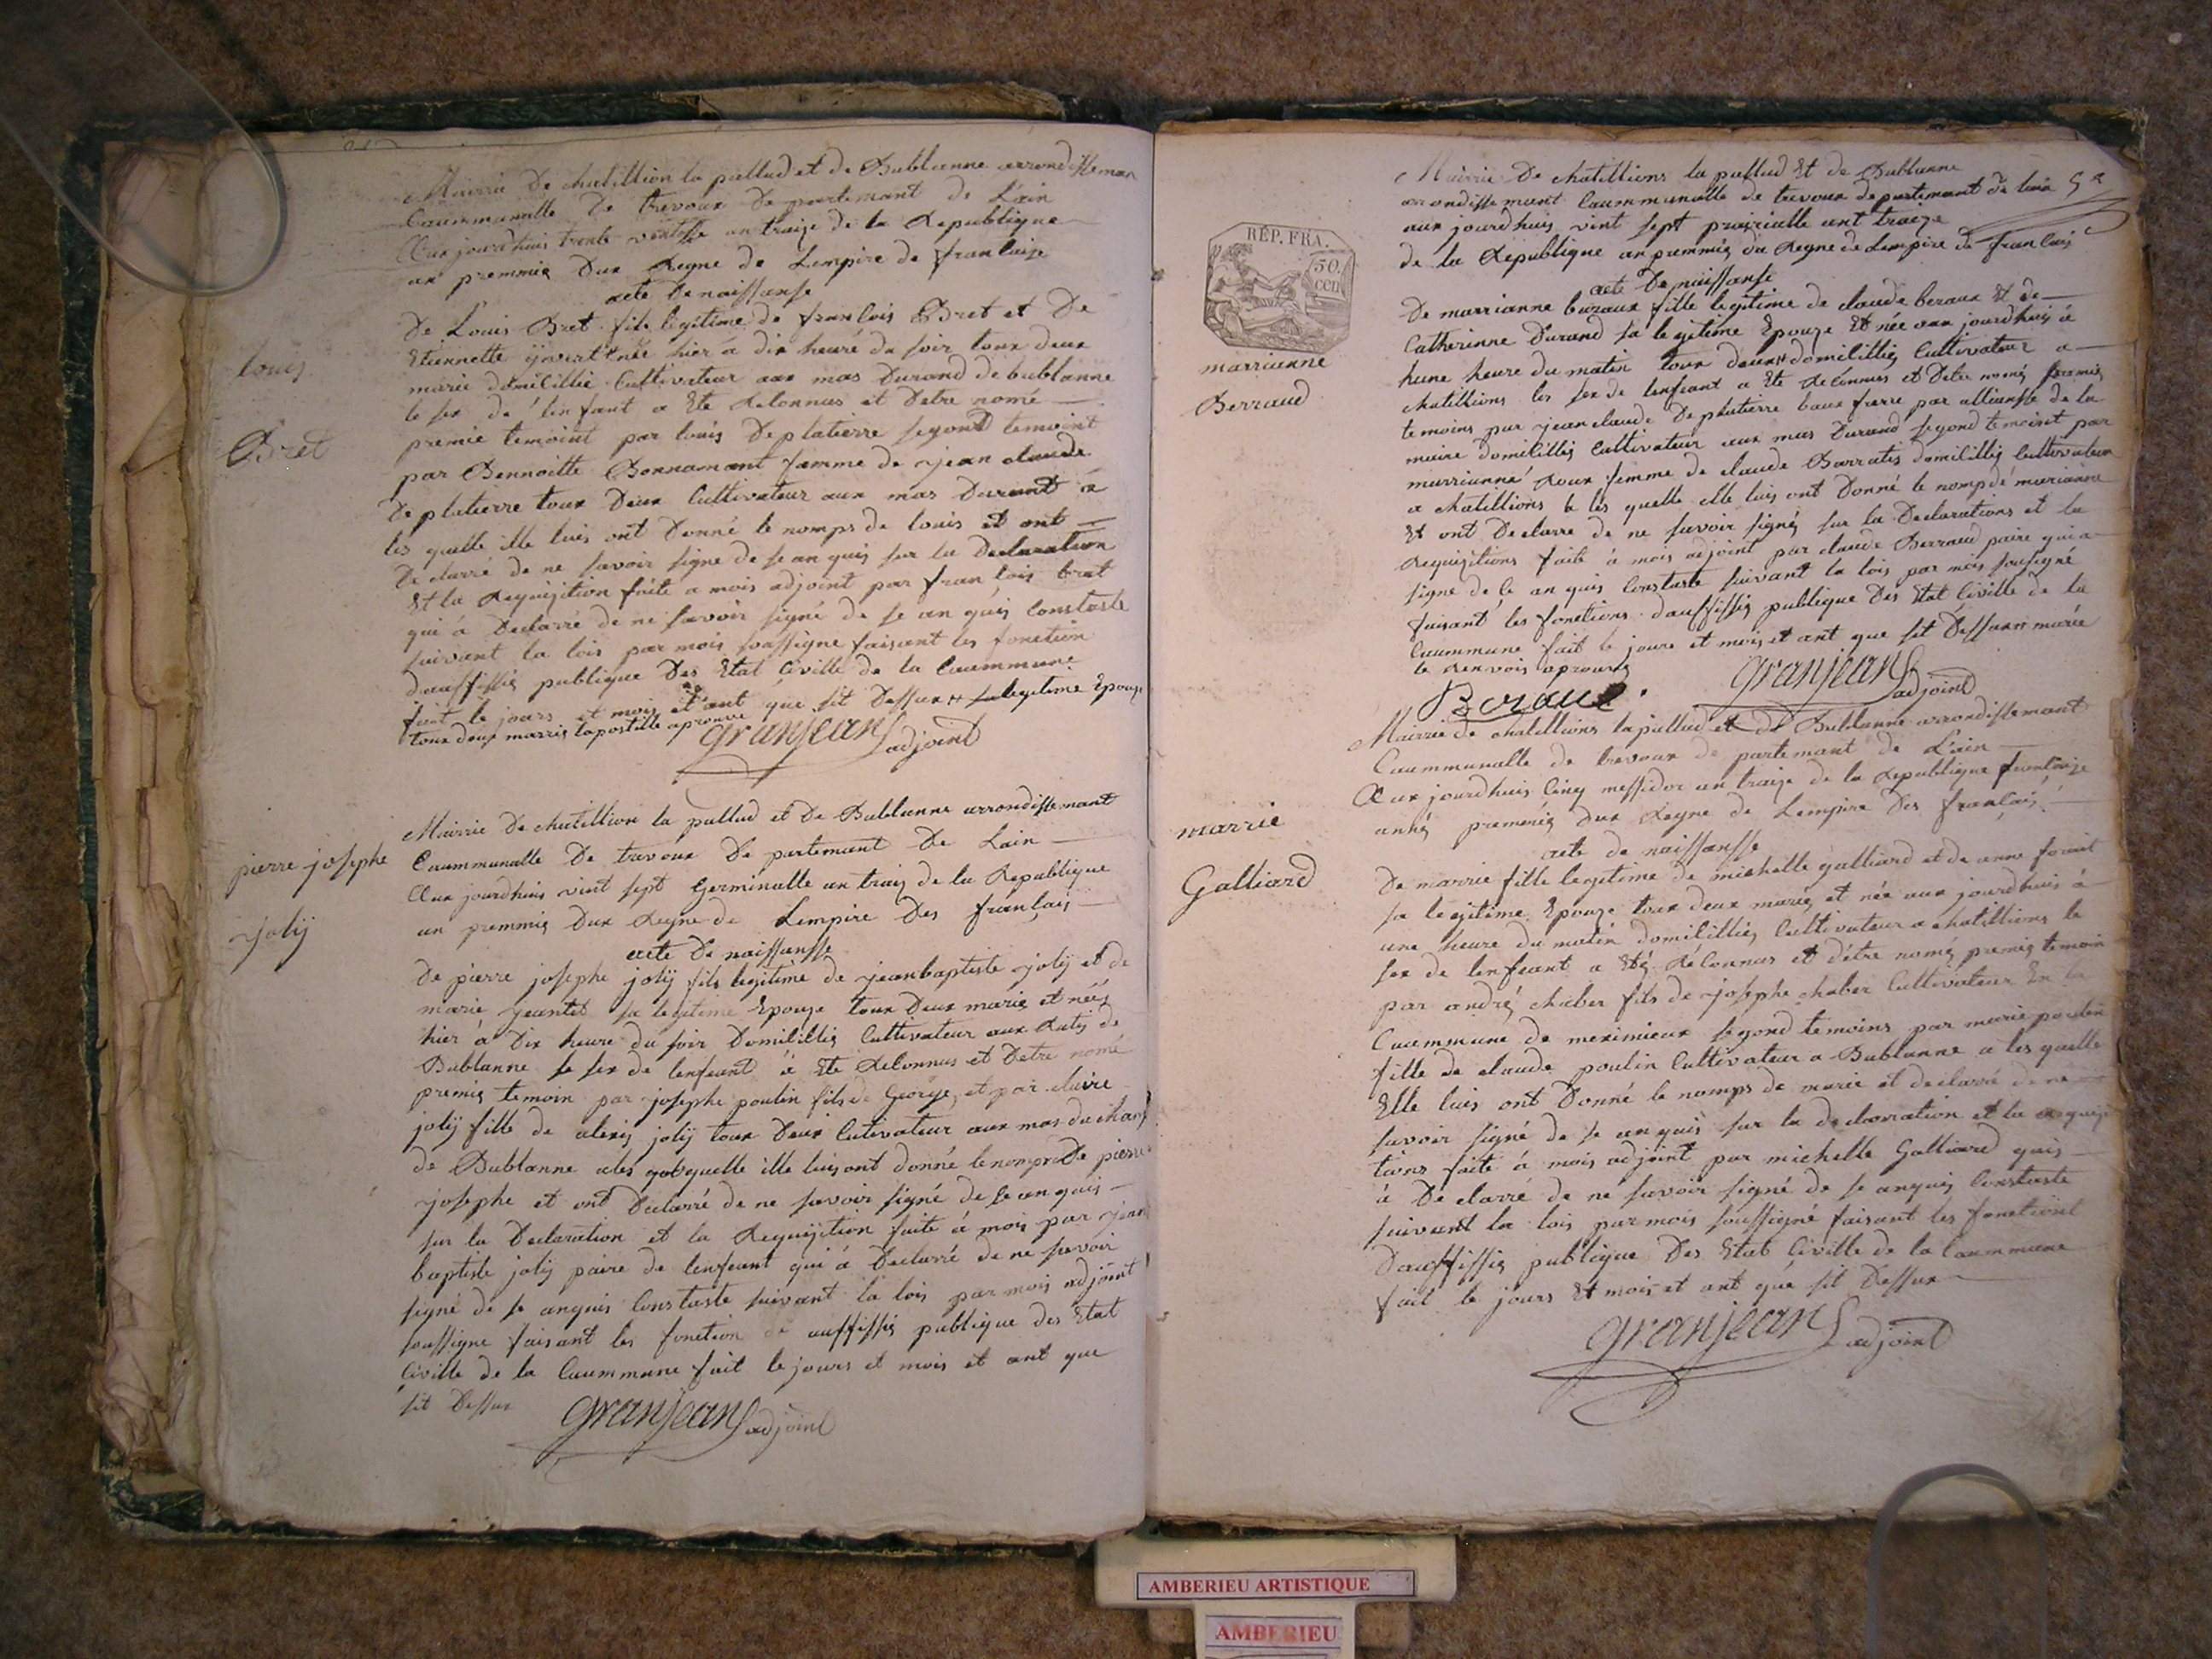 Mairrie De chatillion la pallud et de Bublanne arrondisseman
Caummunalle De trevoux De partemant de L'ain
Aux jourdhuis trente ventosse an traize de la Republique
an premmié Dux Regne de Lempire de francaize
acte De naissansse
louis
De Louis Bret fils legitime de francois Bret et De
Etiennette né hier a dix heure du soir toux deux
marie domicillie Cultivateur aux mas Durand de bublanne
le sex de lenfant a Ete Reconnus et Detre nomé
Bret
premie temoint par louis Deplatierre segond temoint
par Bennoitte Bonnamant famme de jean claude
De platierre toux Deux Cultivateur aux mas Durand a
les quelle ille luis ont Donné le nomps de louis et ont
De clarré de ne savoir signe de se an quis sur la Declaration
Et la Requizition faite a mois adjoint par francois bret
qui à Declarré de ne savoir signé de se an quis Constaste
suivant la lois par mois soussigne faisant les fonction
dauffissié publique Des Etat Civille de la Caummune
fait le jours et mois et ant que sit Dessux sa legitime Epouze
toux deux marrié lapostille aprouve
granjean adjoint
Mairrie De chatillion la pallud et De Bublanne arrondissemant
pierre josephe
Caummunalle De trevoux De partemant De Lain
Aux jourdhuis vint sept Germinalle an traiz de la Republique
joly
an premmié Dux Regne de Lempire Des français
acte De naissansse
De pierre josephe joly fils legitime de jean baptiste joly et de
marie jeantet sa legitime Epouze toux Deux marié et néé
hier à Dix heure du soir Domicillié Cultivateur aux Rutis de
Bublanne le sex de lenfeant à Ete Reconnus et Detre nomé
premié temoin par josephe poulin fils de George et par claire
joly fille de alexis joly toux Deux Cutivateur aux mas du
de Bublanne a les quelle ille luis ont donné le nomps De pierre
josephe et ont Declarré de ne savoir signé de se an quis
sur la Declaration et la Requizition faite à mois par jean
baptiste joly paire de lenfeant qui à Declarré de ne savoir
signé de se anquis Constaste suivant la lois par mois adjoint
soussigne faisant les fonction de auffissié publique des Etat
Civille de la Caummune fait le jours et mois et ant que
sit Dessux
granjean adjoint
Mairrie De chatillions la pallud Et de Bublanne
arrondissemant Caummunalle de trevoux departemant de lain
aux jourdhuis vint sept prairialle ant traeze
de la Republique an premmié du Regne de Lempire de francais
RÉP. FRA.
50
cen
acte De naissansse
De marrianne beraux fille legitime de claude beraux Et de
marrianne
Berraud
Catherinne Durand sa legitime Epouze Et née aux jourdhuis à
hune heure du matin toux deux domicillié Cultivateur a
chatillions les sex de lenfeant a Ete Reconnus et Detre nomé premié
temoins par jean claude Deplatierre baux frerre par alliansse de la
maire domicillié Cultivateur aux mas Durand segond temoint par
marrianné Roux femme de claude Barratié domicillié Cultivateur
a chatillions a les quelle elle luis ont Donné le nomp dé marianne
Et ont Declarre de ne savoir signé sur la Declarations et la
Requizitions faite à mois adjoint par claude Berraud paire qui a
signe de se an quis Constaste suivant la lois par mois sousigné
faisant les fonctions dauffissié publique Des Etat Civille de la
Caummune fait le jours et mois et ant que sit Dessux marié
le Renvois aprouvé
Beraud
granjean adjoint
Mairrie de chatillions la pallud et de Bublanne arrondissemant
Caummunalle de trevoux de partemant de L'ain
Aux jourdhuis Cinq messidor an traize de la Republique francaize
marrie
anné premmié dux Regne de Lempire Des français
acte de naissansse
Galliard
De marrie fille legitime de michelle galliard et de anne
sa legitime Epouze toux deux marié et née aux jourdhuis à
une heure du matin domicillié Cultivateur a chatillions le
sex de lenfeant a Eté Reconnus et d'étre nomé premié temoin
par andré chaber fils de josephe chaber Cultivateur En la
Caummune de meximieux segond temoins par marie poulin
fille de claude poulin Cultivateur a Bublanne a les quelle
Elle luis ont Donné le nomps de marie et declarré de ne
savoir signé de se an quis sur la declaration et la Requizi
tions faite à mois adjoint par michelle Galliard quis
à Declarré de ne savoir signé de se anquis Constaste
suivant la lois par mois soussigné faisant les fonctions
Dauffissié publique Des Etat Civille de la Caummune
fait le jours Et mois et ant que sit Dessux
granjean adjoint
AMBERIEU ARTISTIQUE
AMBERIEU